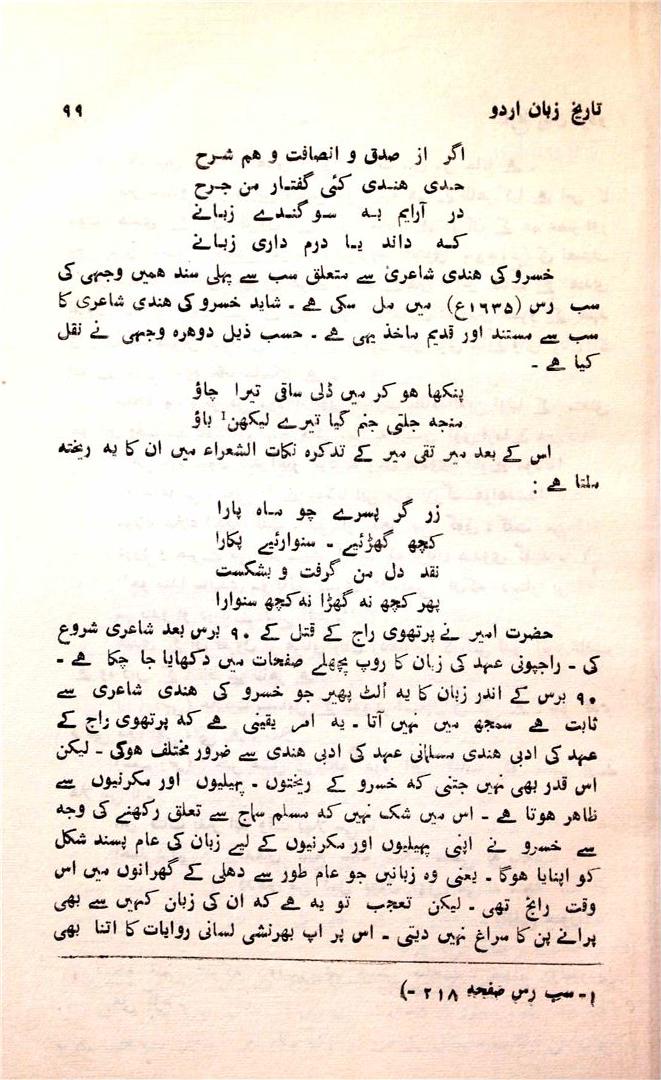 تاریخ زبان اردو ۹۹
اگر از صدق و انصافت و هم شرح
حدی هندی کئی گفتار من جرح
در آرایم به سوگندے زبانے
که داند یا درم داری زبانے
خسرو کی هندی شاعری سے متعلق سب سے پہلی سند همیں وجہی کی
سب رس (۱۶۳۵ع) میں مل سکی هے ۔ شاید خسرو کی هندی شاعری کا
سب سے مستند اور قدیم ماخذ یہی هے ۔ حسب ذیل دوهره وجہی نے نقل
کیا هے ۔
پنکھا هو کر میں ڈلی ساقی تیرا چاؤ
منجه جلتی جنم گیا تیرے لیکھن¹ باؤ
اس کے بعد میر تقی میر کے تذکرہ نکات الشعراء میں ان کا یه ریخته
ملتا هے :
زر گر پسرے چو ماه پارا
کچھ گھڑئیے ۔ سنوارئیے پکارا
نقد دل من گرفت و بشکست
پھر کچھ نه گھڑا نه کچھ سنوارا
حضرت امیر نے پرتھوی راج کے قتل کے ۹۰ برس بعد شاعری شروع
کی ۔ راجپوتی عہد کی زبان کا روپ پچھلے صفحات میں دکھایا جا چکا هے ۔
۹۰ برس کے اندر زبان کا یه اُلٹ پھیر جو خسرو کی هندی شاعری سے
ثابت هے سمجھ میں نہیں آتا ۔ یه امر یقینی هے که پرتھوی راج کے
عہد کی ادبی هندی مسلمانی عہد کی ادبی هندی سے ضرور مختلف هوگی ۔ لیکن
اس قدر بھی نہیں جتنی که خسرو کے ریختوں ۔ پہیلیوں اور مکرنیوں سے
ظاهر هوتا هے ۔ اس میں شک نہیں که مسلم سماج سے تعلق رکھنے کی وجه
سے خسرو نے اپنی پہیلیوں اور مکرنیوں کے لیے زبان کی عام پسند شکل
کو اپنایا هوگا ۔ یعنی وه زبانیں جو عام طور سے دهلی کے گھرانوں میں اس
وقت رائج تھی ۔ لیکن تعجب تو یه هے که ان کی زبان کہیں سے بھی
پرانے پن کا سراغ نہیں دیتی ۔ اس پر اپ بھرنشی لسانی روایات کا اتنا بھی
۱۔ سب رس صفحه ۲۱۸ ۔)